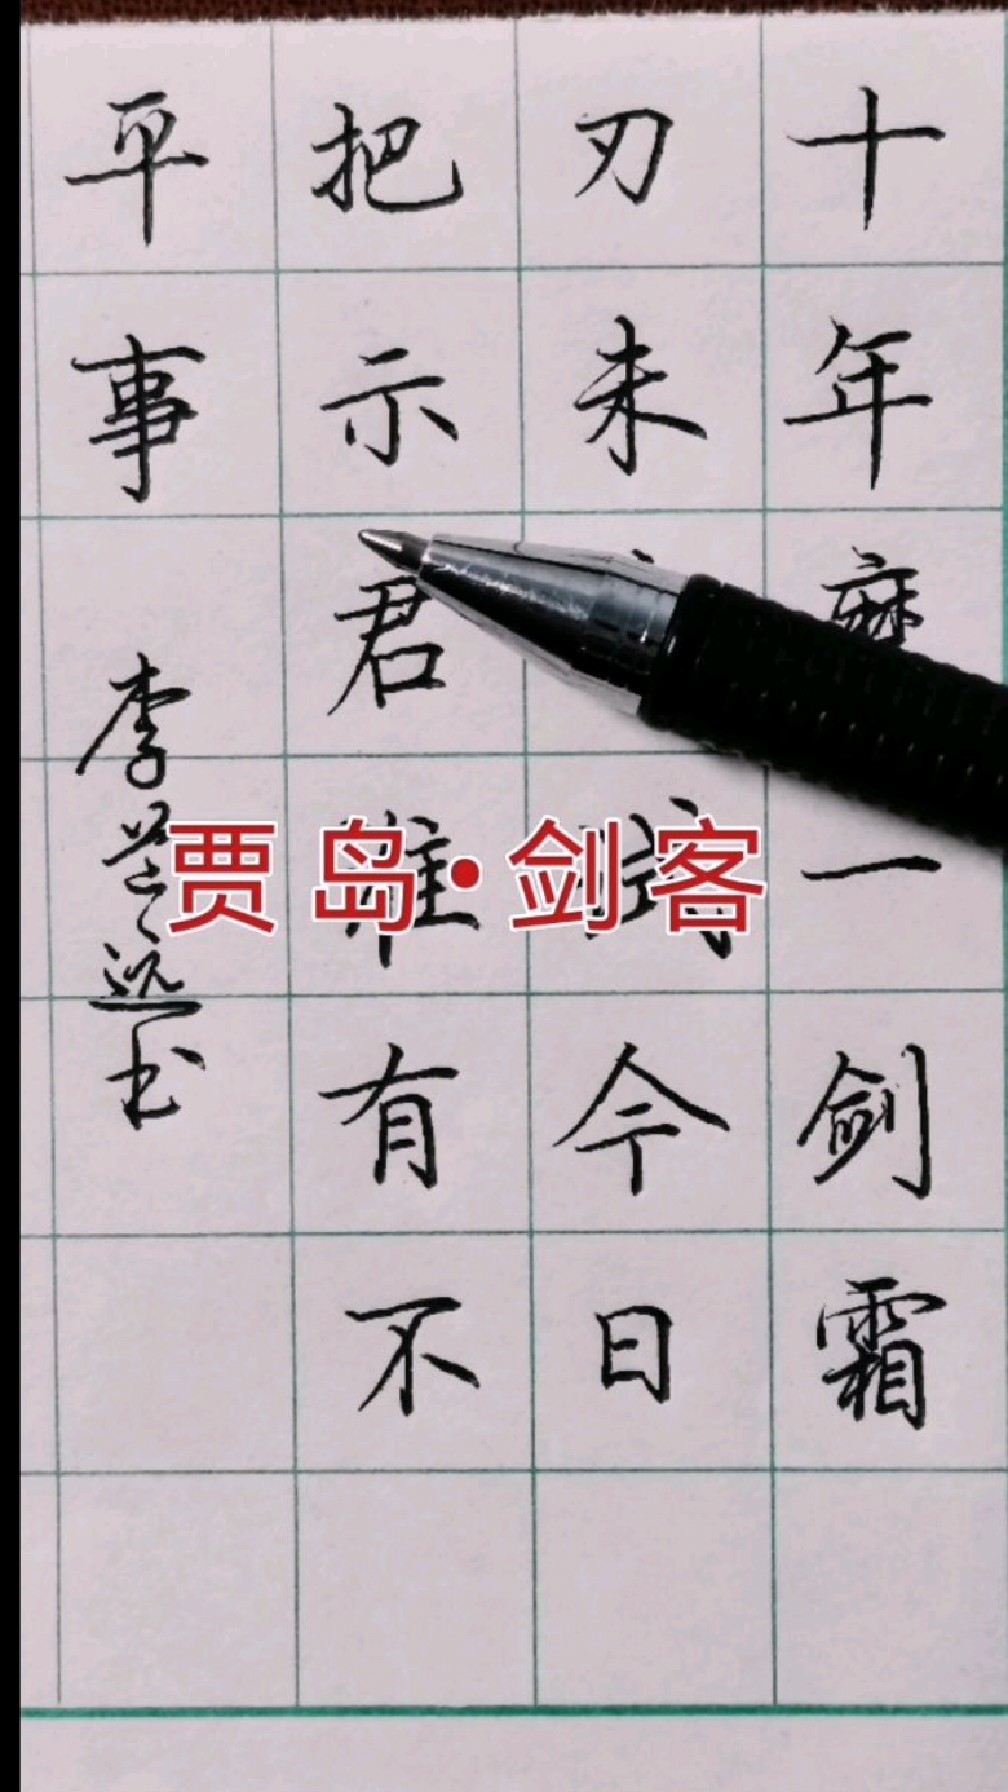 十年一剑霜
刃未今日
把示君谁有不
平事
李远书
贾岛·剑客